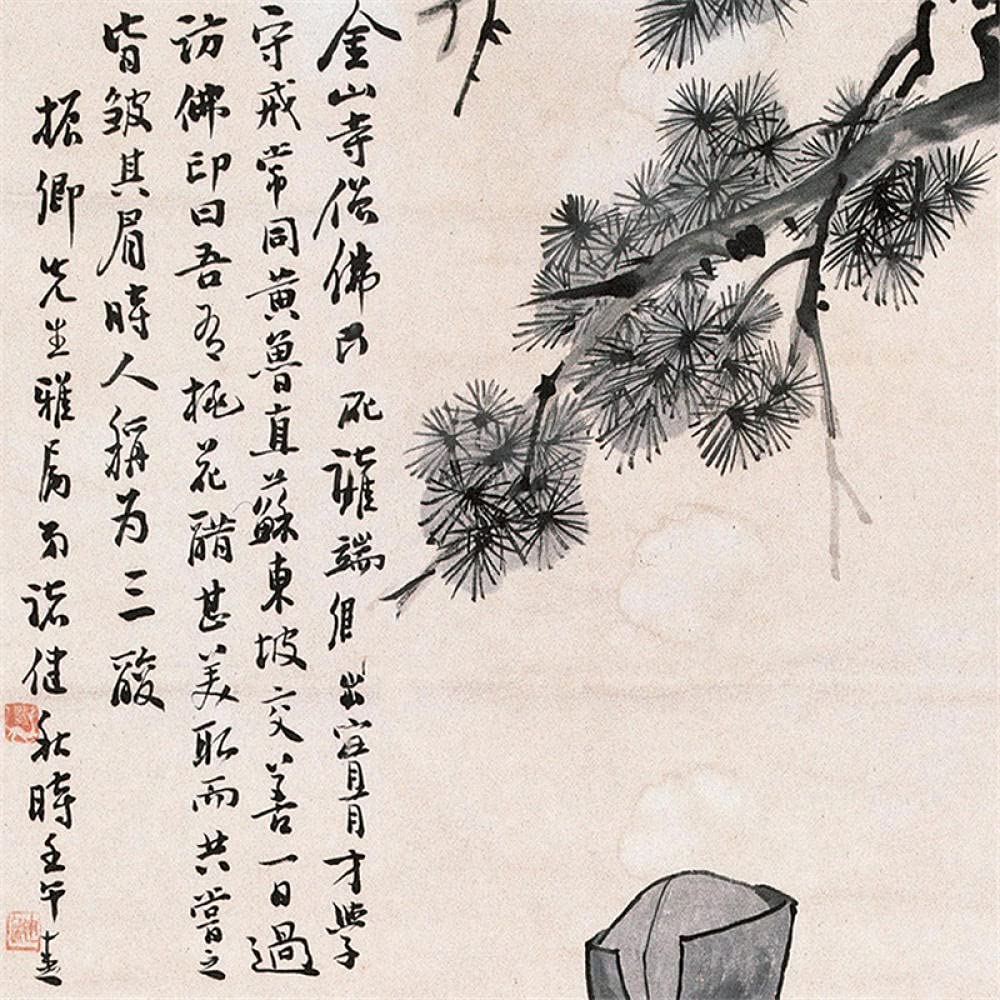 金山寺僧佛印雖端出才學
守戒常同黃魯直蘇東坡交善一日過
訪佛印曰吾有桃花醋甚美取而共嘗之
皆皺其眉時人稱为三酸
振卿先生雅屬弟諸健秋時壬午春